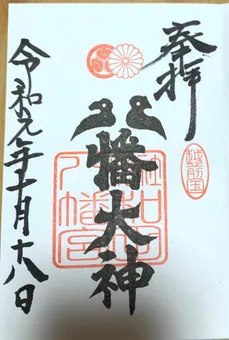 奉拝
越前国
八幡大神
令和元年十月十八日